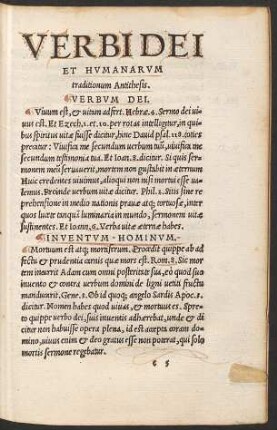 VERBI DEI
ET HVMANARVM
traditionum Antithesis.
VERBVM DEI.
Viuum est, & uitam adfert. Hebræ. 4. Sermo dei ui
uus est. Et Ezech. 1. et .10. per rotas intelligitur, in qui
bus spiritus uitæ fuisse dicitur, hinc Dauid psal. 118. toties
precatur: Viuifica me secundum uerbum tuū, uiuifica me
secundum testimonia tua. Et Ioan. 8. dicitur. Si quis sermo
nem meū seruauerit, mortem non gustabit in æternum
Huic credentes uiuimus, alioqui non nisi mortis esse pos
sumus. Proinde uerbum uitæ dicitur. Phil. 2. Sitis sine re
prehensione in medio nationis prauæ atq; tortuosæ, inter
quos lucete tanquā luminaria in mundo, sermonem uitæ
sustinentes. Et Ioan. 6. Verba uitæ æternæ habes.
INVENTVM HOMINVM.
Mortuum est atq; mortiferum. Procedit quippe ab ad
fectu & prudentia carnis quæ mors est. Rom. 8. Sic mor
tem inuexit Adam cum omni posteritate sua, eò quod suo
inuento & contra uerbum domini de ligni uetiti fructu
manducarit. Gene. 3. Ob id quoq; angelo Sardis Apoc. 3.
dicitur. Nomen habes quod uiuas, & mortuus es. Spre
to quippe uerbo dei, suis inuentis adhærebat, unde & di
citur non habuisse opera plena, id est accepta coram do
mino, uiuus enim & deo gratus esse non poterat, qui solo
mortis sermone regebatur.